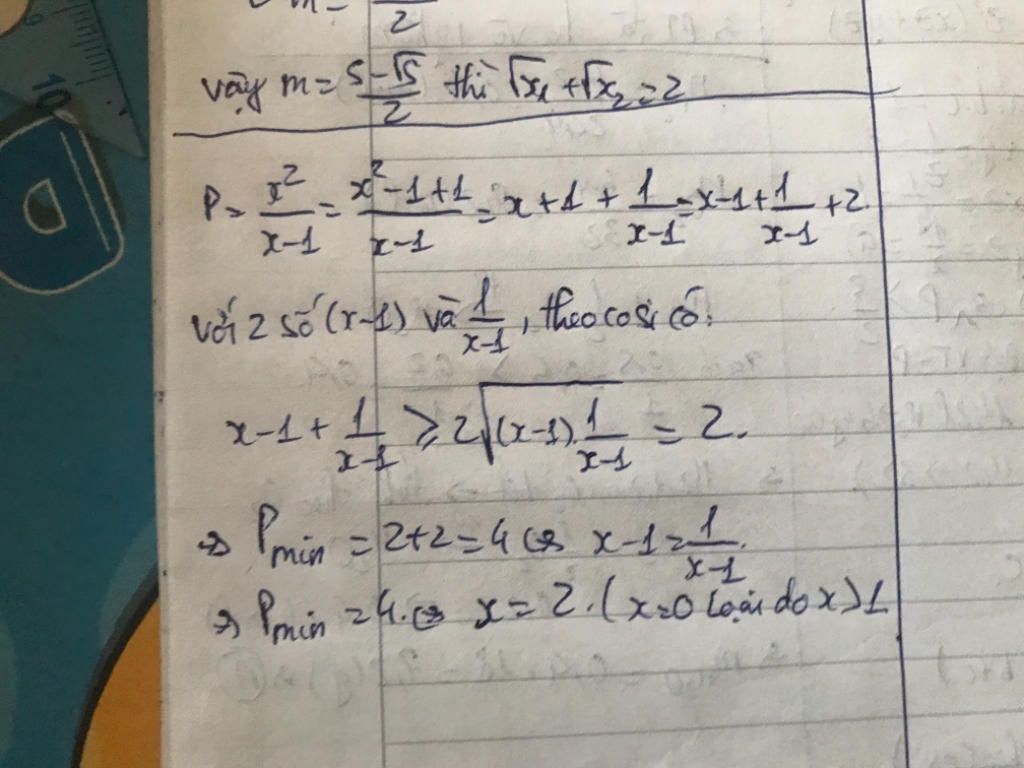 m = /2
vậy m = (5-√5)/2 thì √x₁ + √x₂ = 2
P = x²/(x-1) = (x²-1+1)/(x-1) = x+1 + 1/(x-1) = x-1 + 1/(x-1) + 2.
với 2 số (x-1) và 1/(x-1), theo cosi có:
x-1 + 1/(x-1) ≥ 2√((x-1).1/(x-1)) = 2.
=> Pmin = 2+2 = 4 <=> x-1 = 1/(x-1).
=> Pmin = 4. <=> x = 2. (x=0 loại do x>1